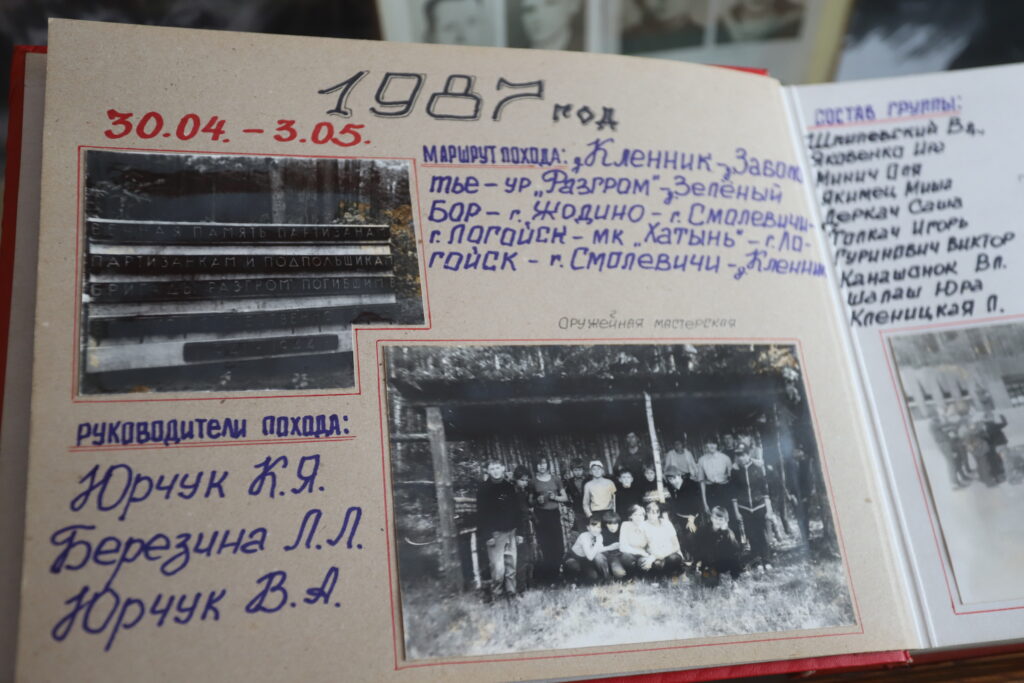 1987 год
30.04. - 3.05.
МАРШРУТ ПОХОДА: д. Кленник - д. Заболо-
тье - ур. „Разгром" - д. Зелёный
Бор - г. Жодино - г. Смолевичи -
г. Логойск - мк „Хатынь" - г. Ло-
гойск - г. Смолевичи - д. Кленник
ВЕЧНАЯ ПАМЯТЬ ПАРТИЗАНАМ
ПАРТИЗАНКАМ И ПОДПОЛЬЩИКАМ
БРИГАДЫ РАЗГРОМ ПОГИБШИМ В
Оружейная мастерская
РУКОВОДИТЕЛИ ПОХОДА:
Юрчук К.Я.
Березина Л.Л.
Юрчук В.А.
СОСТАВ ГРУППЫ:
Шпилевский Вл.,
Яковенко Ию
Минич Оля
Якимец Миша
Деркач Саша
Толкач Игорь
Гуринович Виктор
Канашанок Вл.
Шалаш Юра
Кленицкая Л.